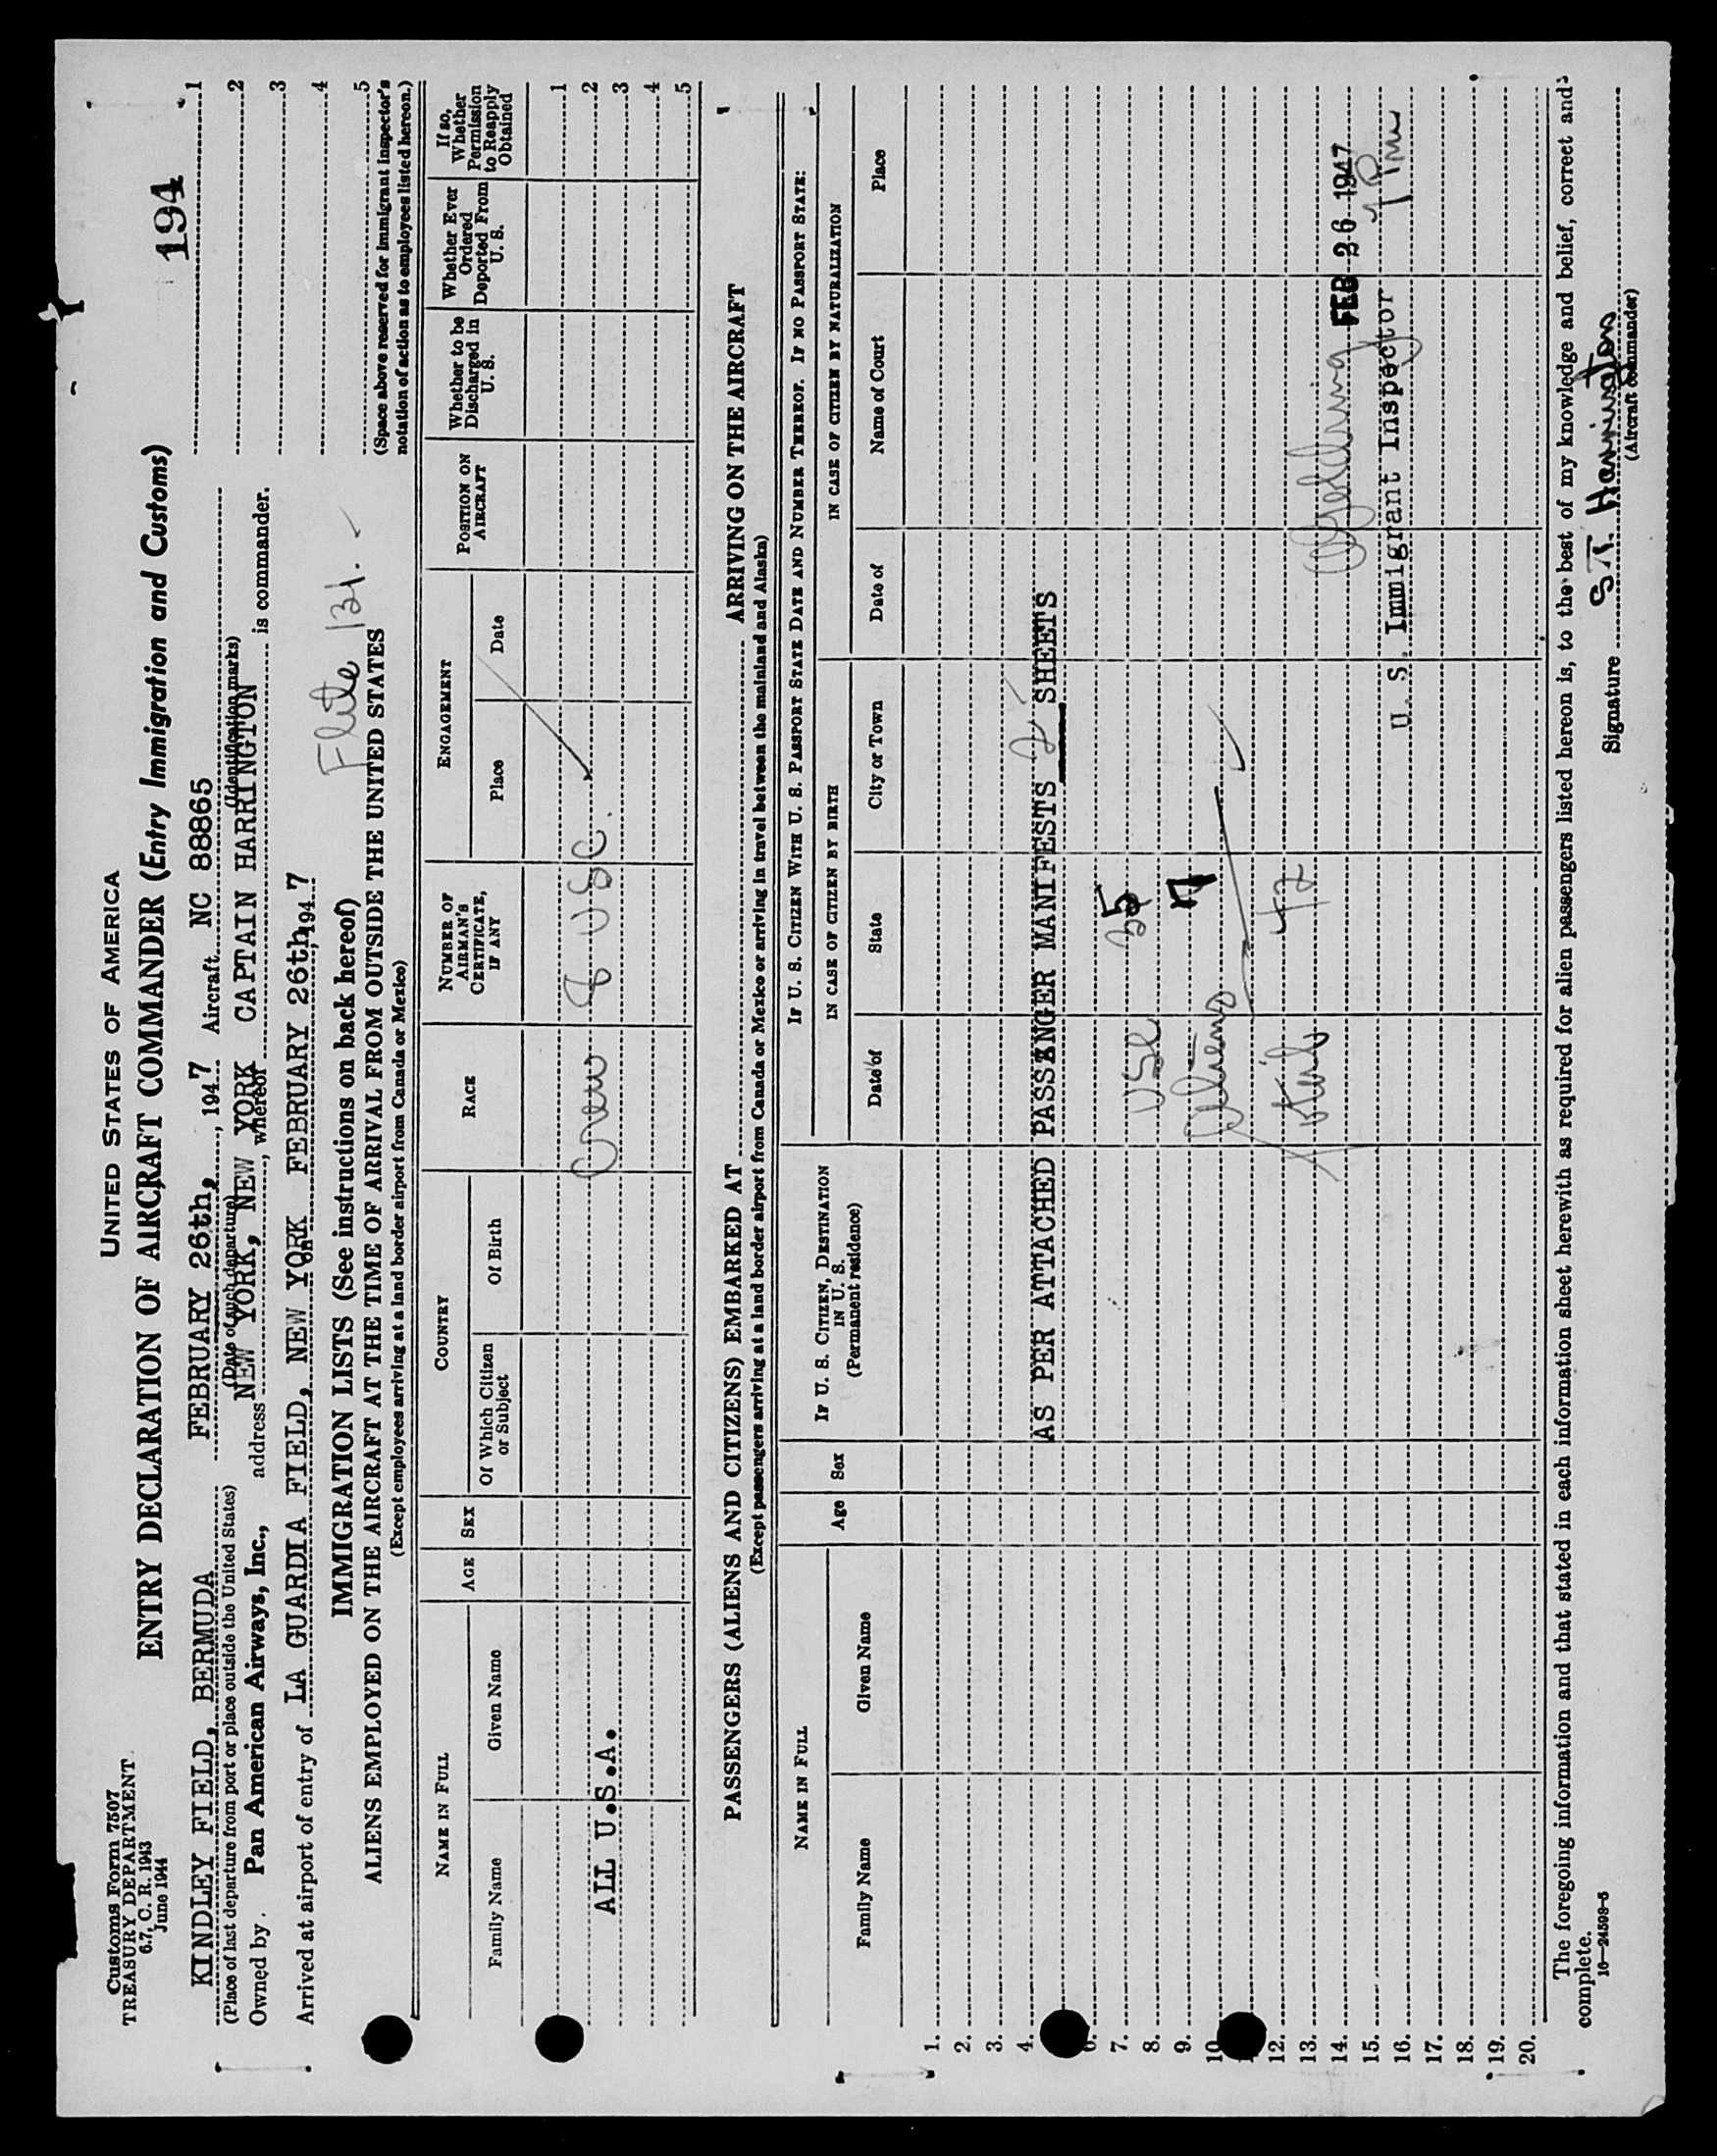 Customs Form 7507
TREASURY DEPARTMENT
6.7, C. R. 1943
June 1944
UNITED STATES OF AMERICA
ENTRY DECLARATION OF AIRCRAFT COMMANDER (Entry Immigration and Customs)
194
KINDLEY FIELD, BERMUDA FEBRUARY 26th, , 1947 Aircraft NC 88865
(Place of last departure from port or place outside the United States) (Date of such departure) (Identification marks)
Owned by Pan American Airways, Inc., address NEW YORK, NEW YORK , whereof CAPTAIN HARRINGTON is commander.
Arrived at airport of entry of LA GUARDIA FIELD, NEW YORK on FEBRUARY 26th, 1947
Flite 131.
1
2
3
4
5
(Space above reserved for immigrant inspector's
notation of action as to employees listed hereon.)
IMMIGRATION LISTS (See instructions on back hereof)
ALIENS EMPLOYED ON THE AIRCRAFT AT THE TIME OF ARRIVAL FROM OUTSIDE THE UNITED STATES
(Except employees arriving at a land border airport from Canada or Mexico)
NAME IN FULL
Family Name
Given Name
AGE
SEX
COUNTRY
Of Which Citizen
or Subject
Of Birth
RACE
NUMBER OF
AIRMAN'S
CERTIFICATE,
IF ANY
ENGAGEMENT
Place
Date
POSITION ON
AIRCRAFT
Whether to be
Discharged in
U. S.
Whether Ever
Ordered
Deported From
U. S.
If so,
Whether
Permission
to Reapply
Obtained
1
2
3
4
5
ALL U.S.A.
Crew 8 USC.
PASSENGERS (ALIENS AND CITIZENS) EMBARKED AT ARRIVING ON THE AIRCRAFT
(Except passengers arriving at a land border airport from Canada or Mexico or arriving in travel between the mainland and Alaska)
NAME IN FULL
Family Name
Given Name
Age
Sex
IF U. S. CITIZEN, DESTINATION
IN U. S.
(Permanent residence)
IF U. S. CITIZEN WITH U. S. PASSPORT STATE DATE AND NUMBER THEREOF. IF NO PASSPORT STATE:
IN CASE OF CITIZEN BY BIRTH
Date of
State
City or Town
IN CASE OF CITIZEN BY NATURALIZATION
Date of
Name of Court
Place
1.
2.
3.
4.
AS PER ATTACHED PASSENGER MANIFESTS 2 SHEETS
6.
7.
USC 35
8.
9.
Aliens 7
10
12.
42
13.
14.
FEB 26 1947
15.
1 Pm
16.
U. S. Immigrant Inspector
17.
18.
19.
20.
The foregoing information and that stated in each information sheet herewith as required for alien passengers listed hereon is, to the best of my knowledge and belief, correct and
complete.
16—24598-5
Signature S.T. Harrington
(Aircraft commander)